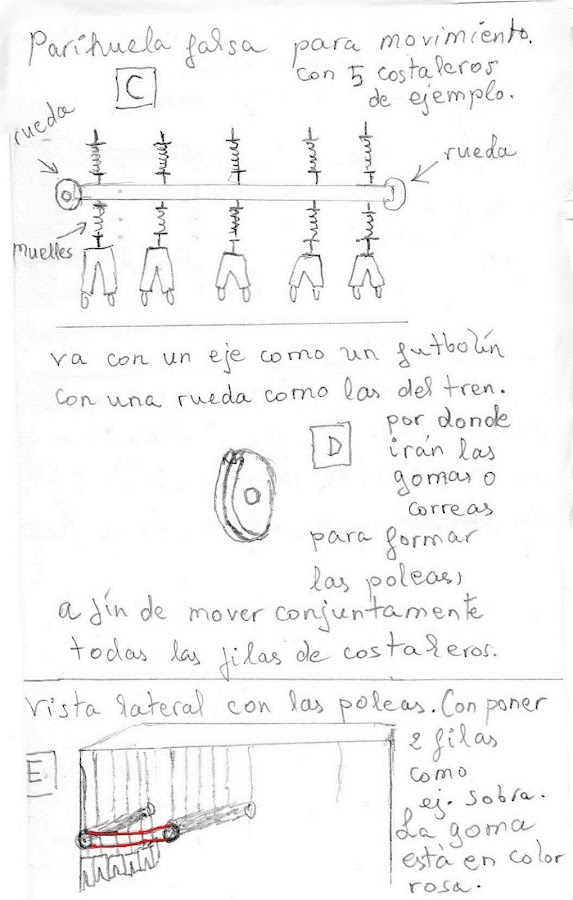 Parihuela falsa para movimiento.
con 5 costaleros
de ejemplo.
C
rueda
rueda
muelles
va con un eje como un futbolín
con una rueda como las del tren.
por donde
D
irán las
gomas o
correas
para formar
las poleas,
a fín de mover conjuntamente
todas las filas de costaleros.
Vista lateral con las poleas. Con poner
2 filas
E
como
ej. sobra.
La goma
está en color
rosa.